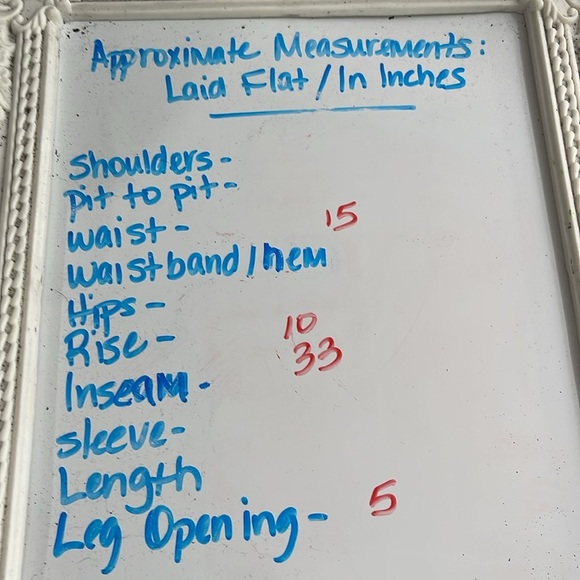 Approximate Measurements:
Laid Flat/In Inches
Shoulders-
pit to pit-
waist- 15
waistband/hem
Hips-
Rise- 10
Inseam- 33
sleeve-
Length
Leg Opening- 5